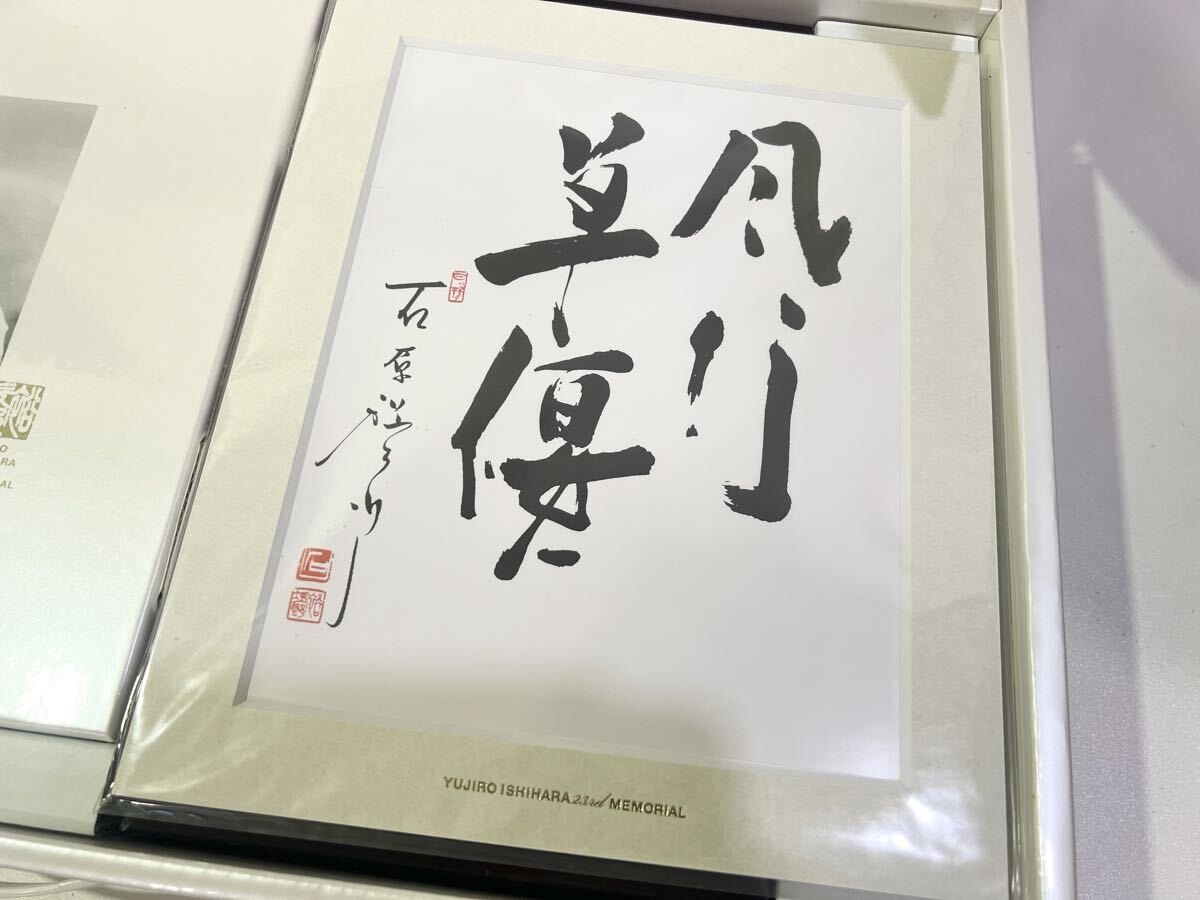 風行
草偃
石原裕次郎
YUJIRO ISHIHARA 23rd MEMORIAL
O
ARA
AL